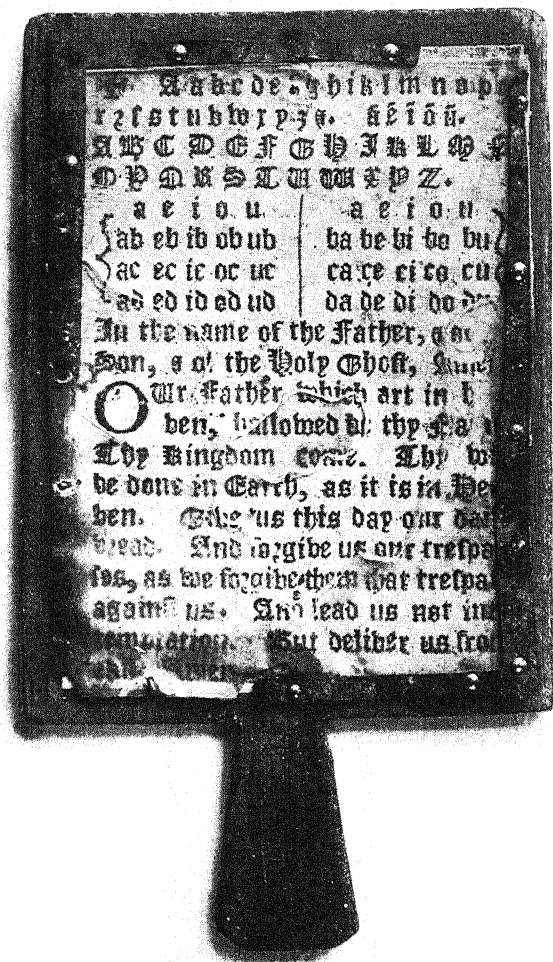 A a b c d e g h i k l m n o p
r ꝛ ſ s t u b w x y z &. ã ẽ ĩ õ ũ.
A B C D E F G H I K L M
O P Q R S T U W X Y Z.
a e i o u a e i o u
ab eb ib ob ub ba be bi bo bu
ac ec ic oc uc ca ce ci co cu
ad ed id od ud da de di do du
In the name of the Father, &
Son, & of the Holy Ghoſt,
OUr Father which art in
ven, hallowed be thy
Thy Kingdom come. Thy
be done in Earth, as it is in
ven. Give us this day our
bread. And foꝛgive us our treſpa
ſes, as we foꝛgive them that treſpa
againſt us. And lead us not in
temptation. But deliver us
Amen